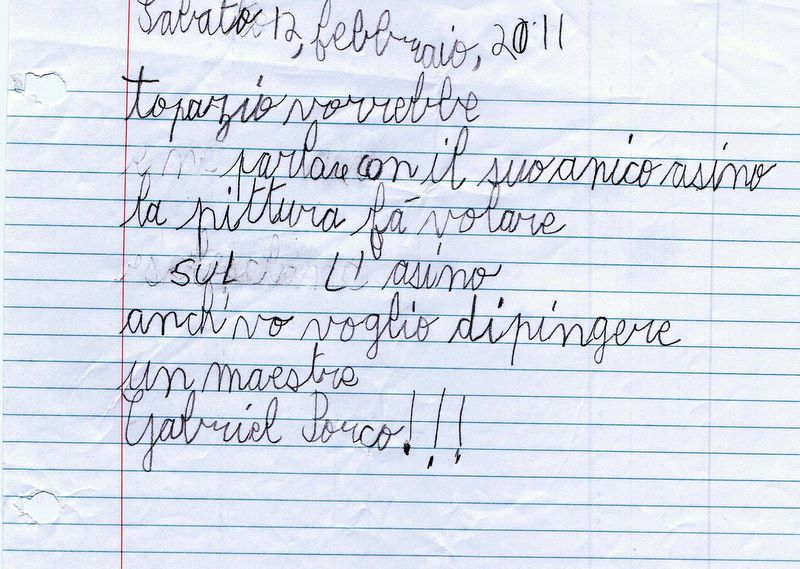 Sabato 12, febbraio, 2011
topazio vorrebbe
parlare con il suo amico asino
la pittura fá volare
sul l'asino
anch'vo voglio dipingere
un maestro
Gabriel Porco!!!